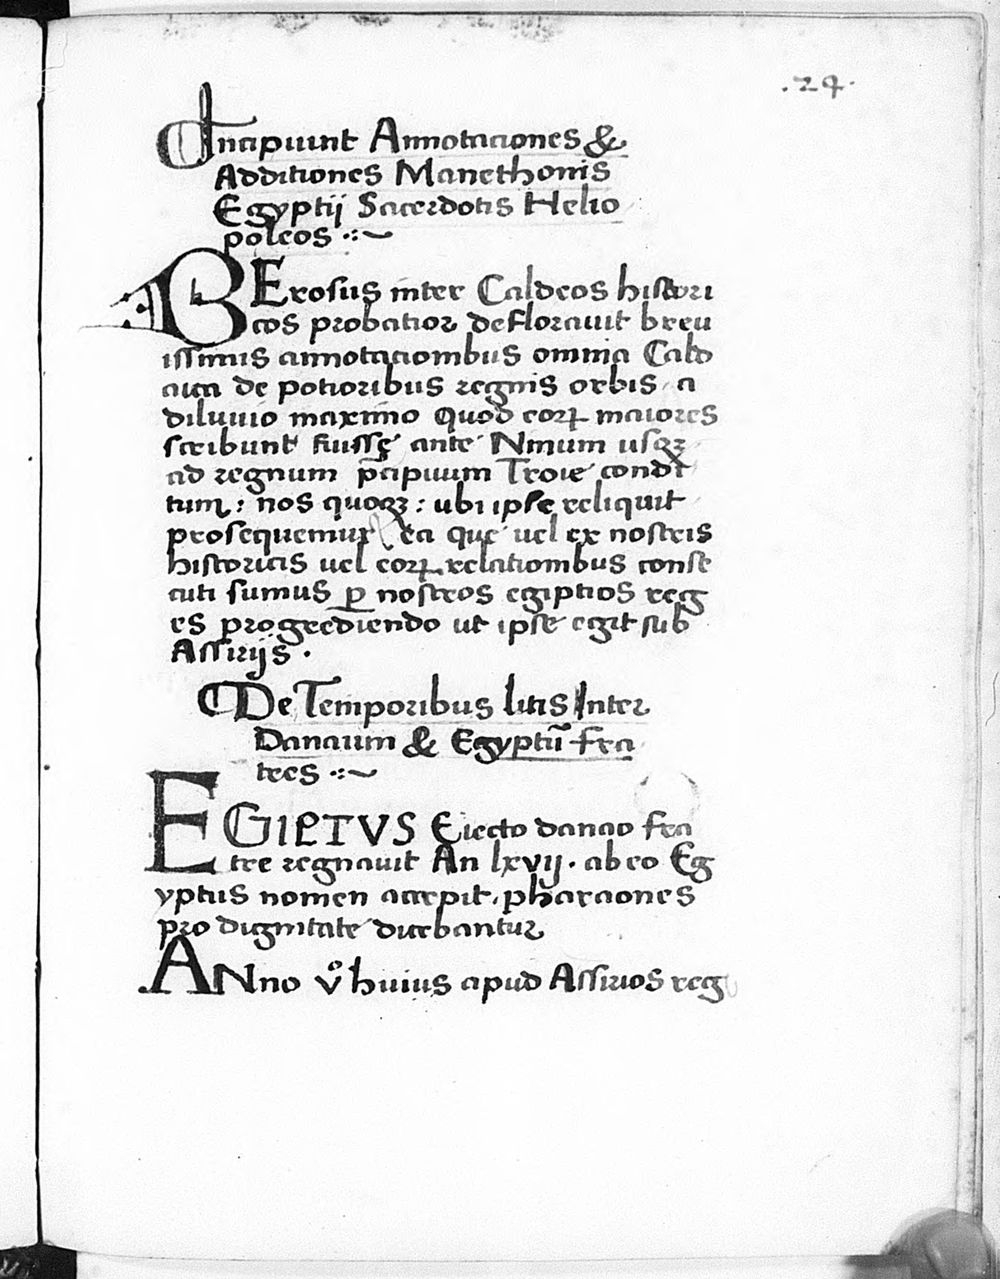 .24.
Incipiunt Annotaciones &
Additiones Manethonis
Egyptij Sacerdotis Helio
poleos
BErosus inter Caldeos histori
cos probatior deflorauit breu
issimis annotacionibus omnia Cald
aica de potioribus regnis orbis a
diluuio maximo quod eoꝝ maiores
scribunt fuissę ante Ninum usqꝫ
ad regnum p̄cipuum Troie condi
tum: nos quoqꝫ: ubi ipse reliquit
prosequemur ea que uel ex nostris
historicis uel eoꝝ relationibus conse
cuti sumus ꝑ nostros egiptios reg
es progrediendo ut ipse egit sub
Assirijs.
De Temporibus litis Inter
Danaum & Egyptū fra
tres
EGIPTVS Eiecto danao fra
tre regnauit An lxvij. ab eo Eg
yptus nomen accepit, pharaones
pro dignitate dicebantur
ANno vº huius apud Assirios reg